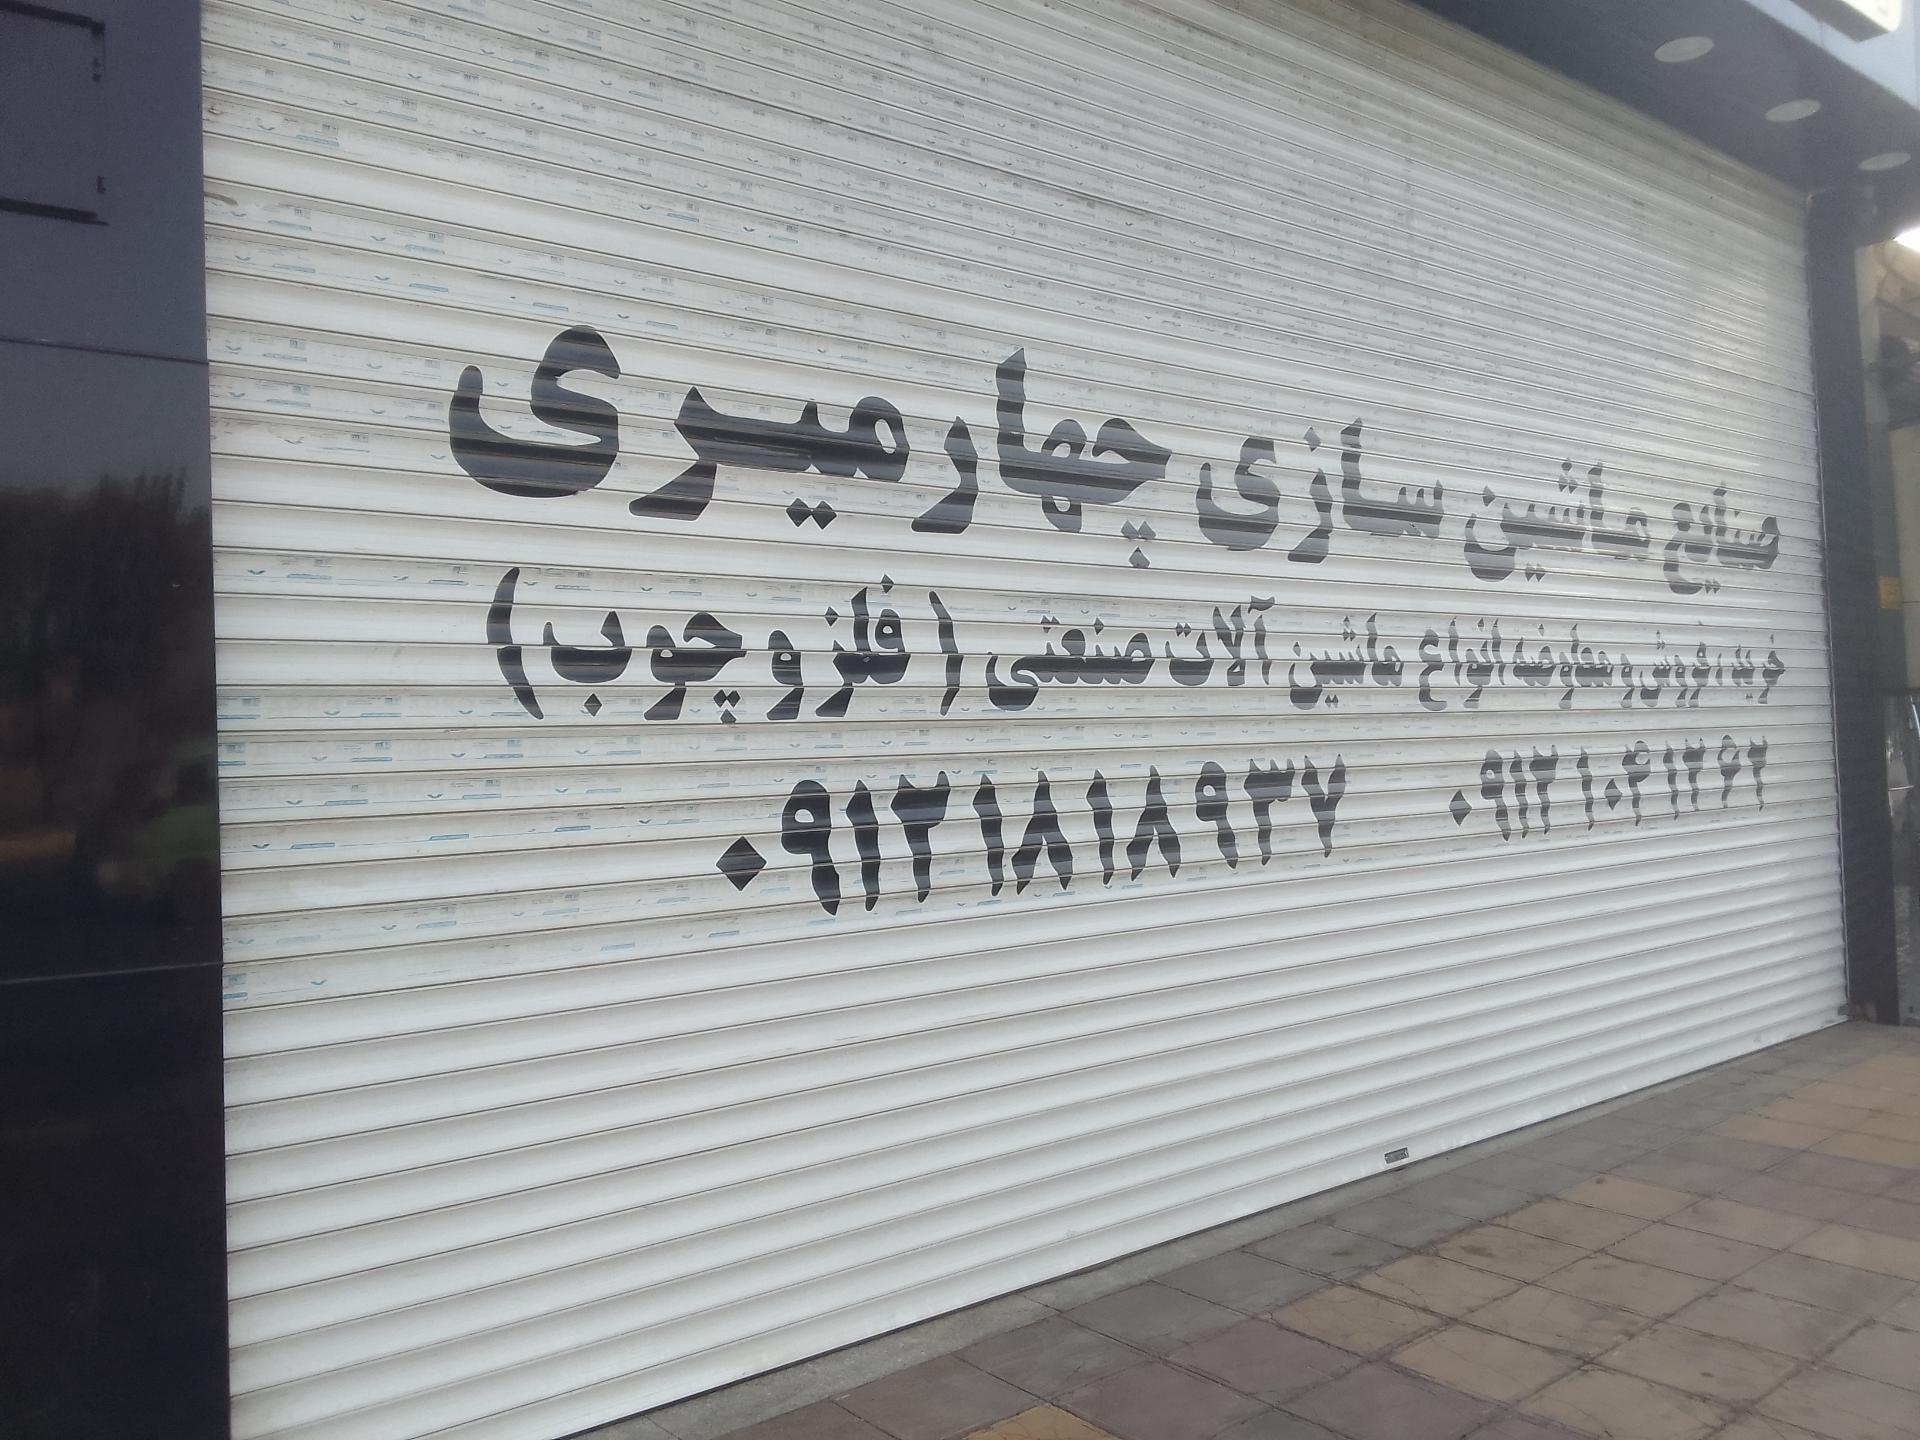 صنایع ماشین سازی چهارمیری
خرید، فروش و معاوضه انواع ماشین آلات صنعتی (فلز و چوب)
۰۹۱۲۱۸۱۸۹۳۷ ۰۹۱۲۱۰۴۱۲۶۲